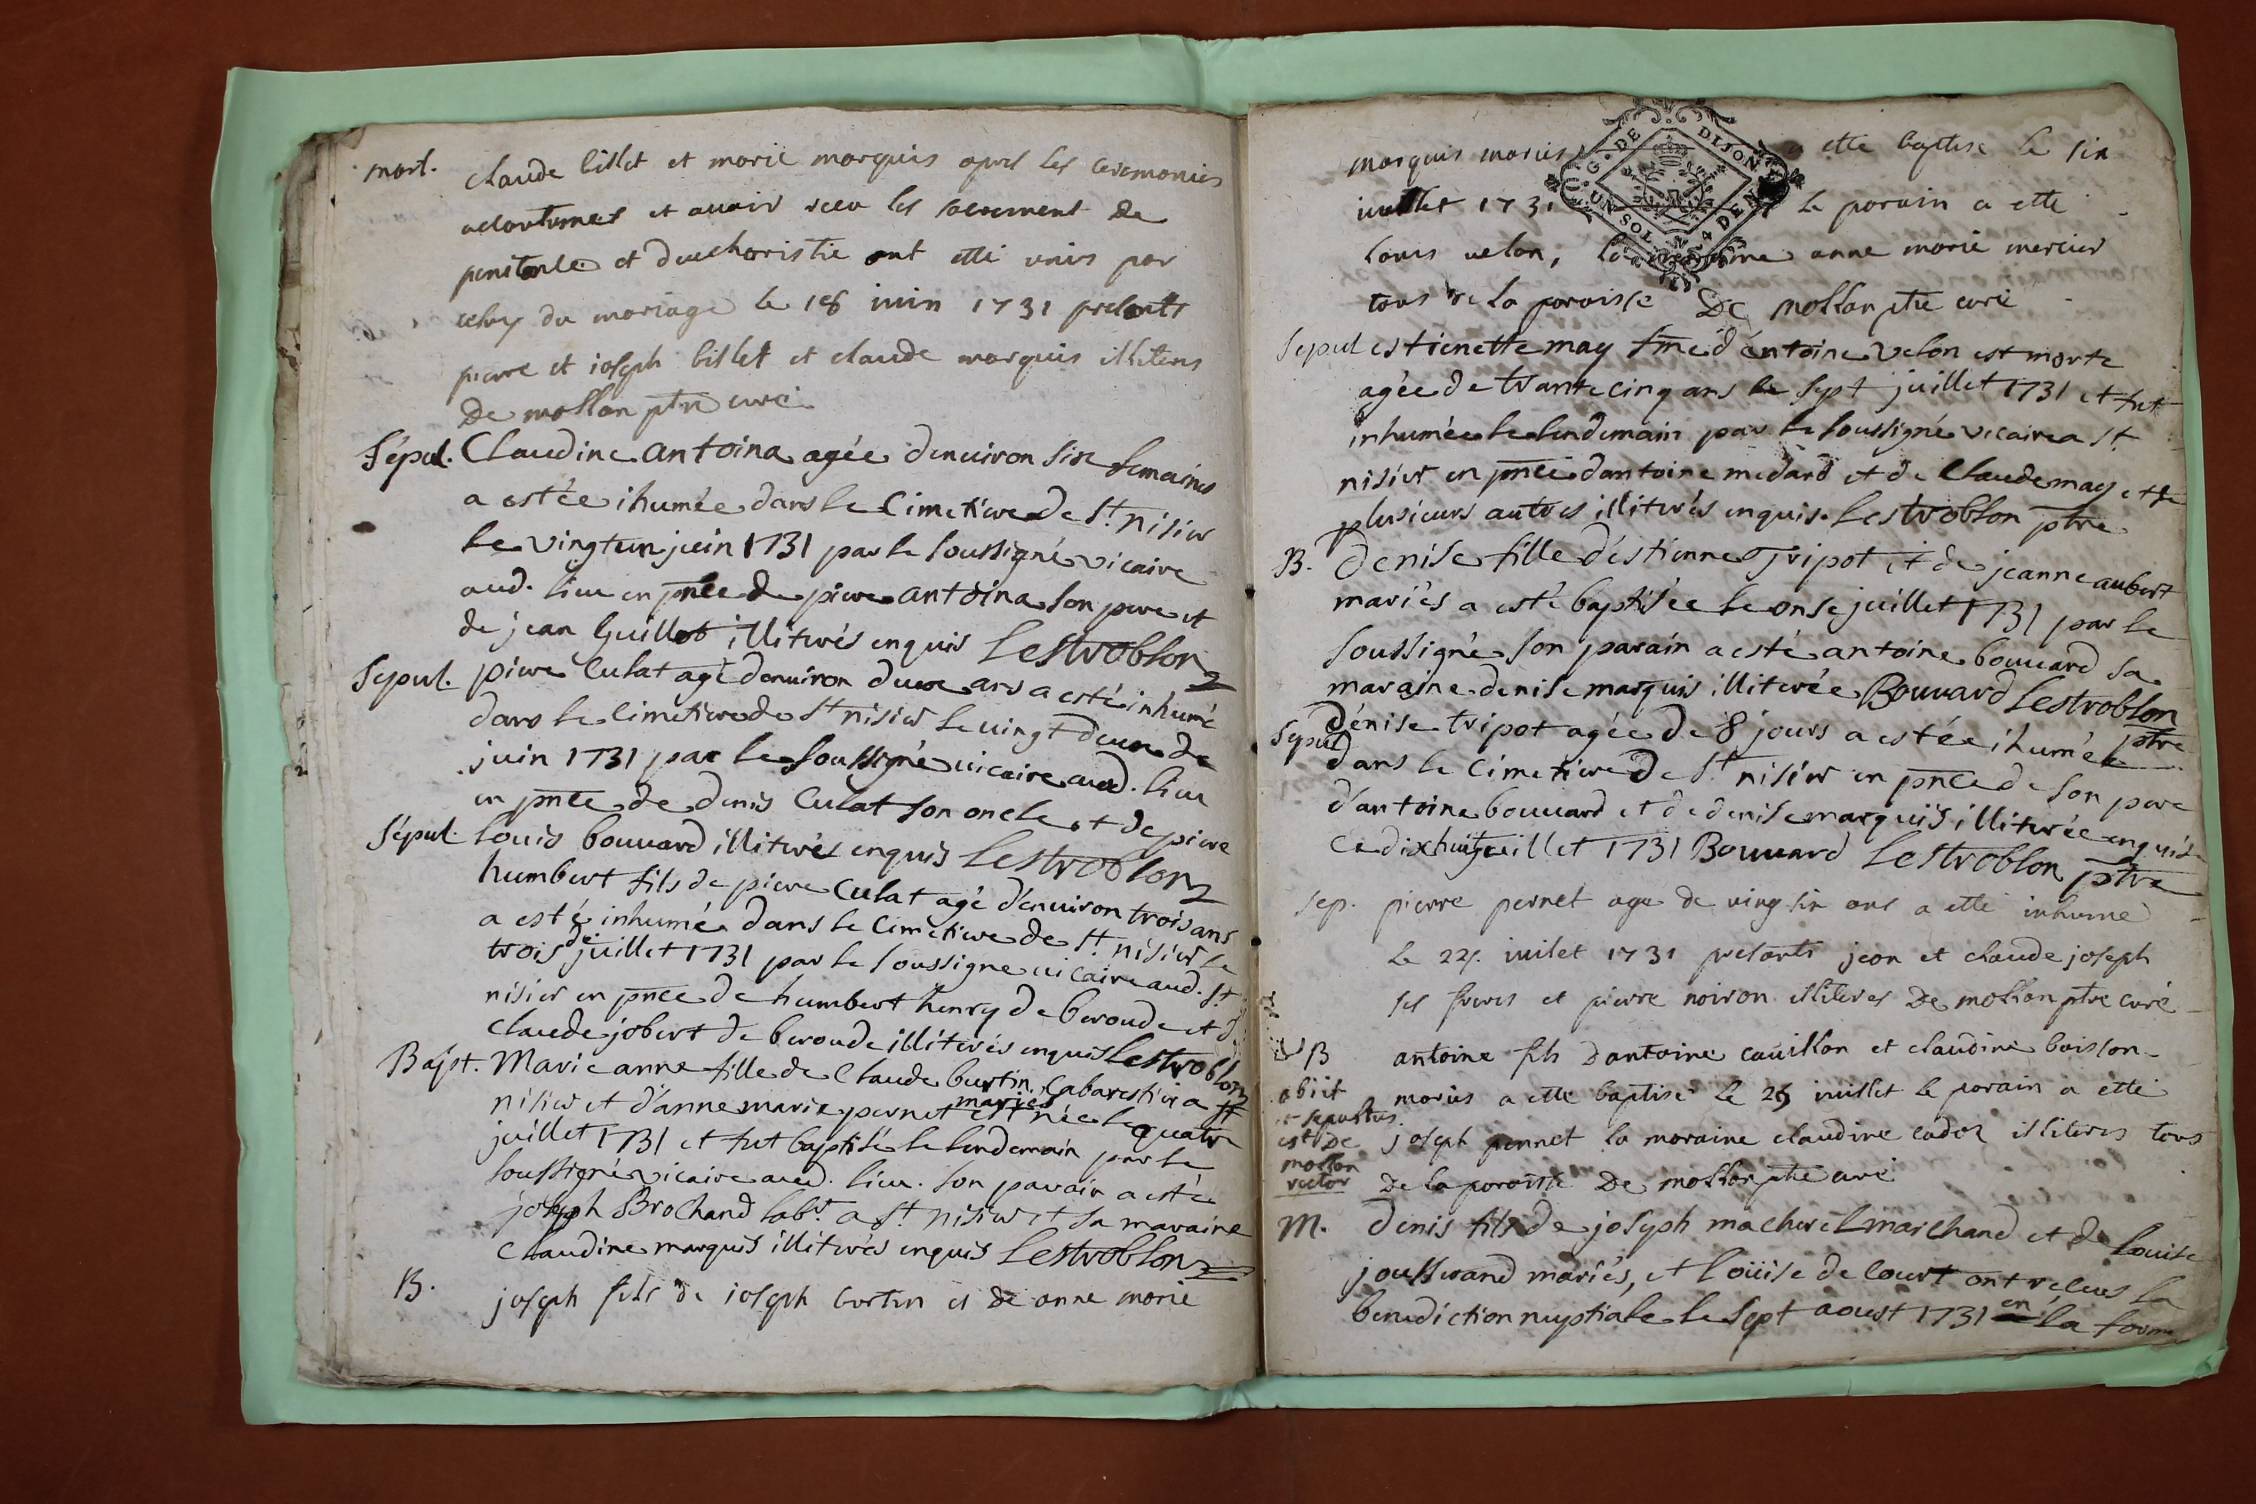 mort. claude billet et marie marquis apres les ceremonies
acoutumes et avoir receu les sacrement de
penitence et deucharistie ont etté unis par
celuy du mariage le 18 iuin 1731 presents
pierre et ioseph billet et claude marquis illiteres
De mollan ptre curé
Sépul. Claudine antoina agée denuiron six semaines
a estée ihumée dans le Cimetiere de St. nisier
le vingt un juin 1731 par le soussigné vicaire
aud. lieu en pnce de piere antoina son pere et
de jean Guillot illiterés enquis Lestroblon
Sepul. piere Culat agé denuiron deux ans a esté inhumé
dans le cimetiere de St nisier le vingt deux de
juin 1731 par le soussigné vicaire aud. lieu
en pnce de denis Culat son oncle et de piere
Sépul. louis bouuard illiterés enquis Lestroblon
humbert fils de piere Culat agé d'enuiron trois ans
a esté inhumé dans le Cimetiere de St. nisier le
trois de juillet 1731 par le soussigne vicaire aud. St
nisier en pnce de humbert henry de beroude et d
claude jobert de beroude illiterés enquis Lestroblon
Bapt. Marie anne fille de Claude burtin Cabarestier a St
nisier et d'anne marie pernet mariés est née le quatre
juillet 1731 et fut baptisée le lendemain par le
soussigné vicaire aud. lieu. son parain a esté
joseph Brochand labr. a St. nisier et sa maraine
Claudine marquis illiterés enquis Lestroblon
B. joseph fils de ioseph burtin et de anne marie
marquis maries a etté baptise le six
iuillet 1731 le parain a etté
louis velon, la maraine anne marie mercier
tous de la paroisse De mollan ptre curé
Sepul estienette may fme d'antoine velon est morte
agée de trante cinq ans le sept juillet 1731 et fut
inhumée le lendemain par le soussigné vicaire a St
nisier en pnce d'antoine medard et de Claude may et de
plusieurs autres illiterés enquis. Lestroblon ptre
B. Denise fille d'estienne Tripot et de jeanne aubert
mariés a esté baptisée le onse juillet 1731 par le
soussigné son parain a esté antoine bouuard sa
maraine denise marquis illiterée Bouuard Lestroblon
ptre
Sepul Dénise tripot agée de 8 jours a estée ihumée
dans le Cimetiere de St nisier en pnce de son pere
d'antoine bouuard et de denise marquis illiterée enquise
Ce dixhuit juillet 1731 Bouuard Lestroblon ptre
Sep. pierre pernet age de ving six ans a etté inhumé
le 22. iuilet 1731 presants jean et claude joseph
ses freres et pierre noiron illiteres De mollan ptre curé
B antoine fils dantoine cauillon et claudine buisson
abiit mariés a etté baptisé le 25 iuillet le parain a etté
et sepultus
est De joseph pennet la maraine claudine cadoz illiteres tous
mollan
rector De la paroisse De mollan ptre curé
M. Denis fils de joseph macherel marchand et de Louise
jousserand mariés, et loüise de Court ont recus la
benediction nuptiale le sept aoust 1731 en la forme
G. DE DIJON
UN SOL 4 DEN